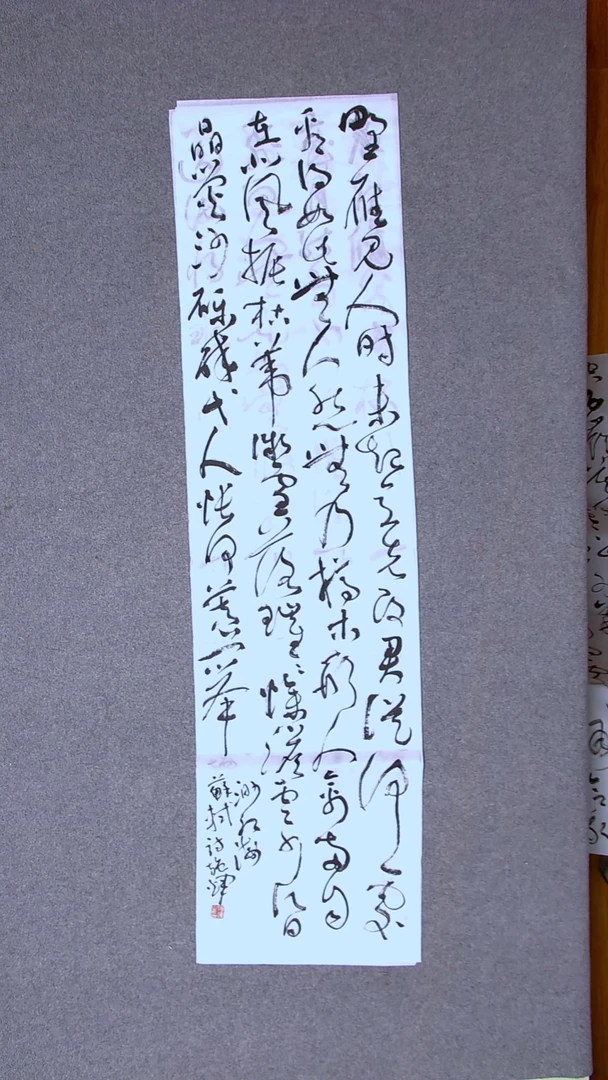 野雁見人時未起意先改君從何處
看得如此無人態無乃槁木形人禽兩自
在北風振枯葦微雪落璀璀慘澹雲水昏
晶熒沙礫碎弋人悵何慕一舉
渺江海
蘇軾詩